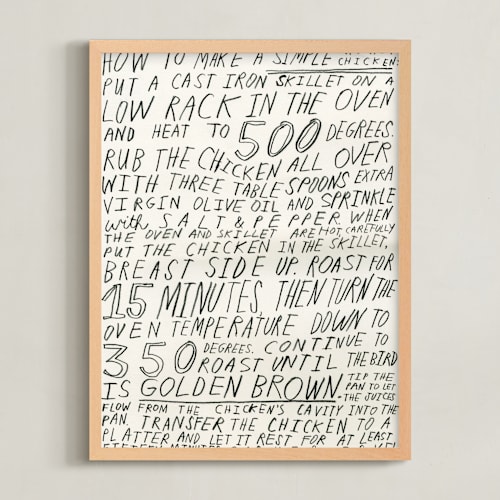 HOW TO MAKE A SIMPLE CHICKEN:
PUT A CAST IRON SKILLET ON A
LOW RACK IN THE OVEN
AND HEAT TO 500 DEGREES.
RUB THE CHICKEN ALL OVER
WITH THREE TABLESPOONS EXTRA
VIRGIN OLIVE OIL AND SPRINKLE
with SALT & PEPPER. WHEN
THE OVEN AND SKILLET ARE HOT, CAREFULLY
PUT THE CHICKEN IN THE SKILLET,
BREAST SIDE UP. ROAST FOR
15 MINUTES, THEN TURN THE
OVEN TEMPERATURE DOWN TO
350 DEGREES. CONTINUE TO
ROAST UNTIL THE BIRD
IS GOLDEN BROWN. TIP THE
PAN TO LET
THE JUICES
FLOW FROM THE CHICKEN'S CAVITY INTO THE
PAN. TRANSFER THE CHICKEN TO A
PLATTER AND LET IT REST FOR AT LEAST